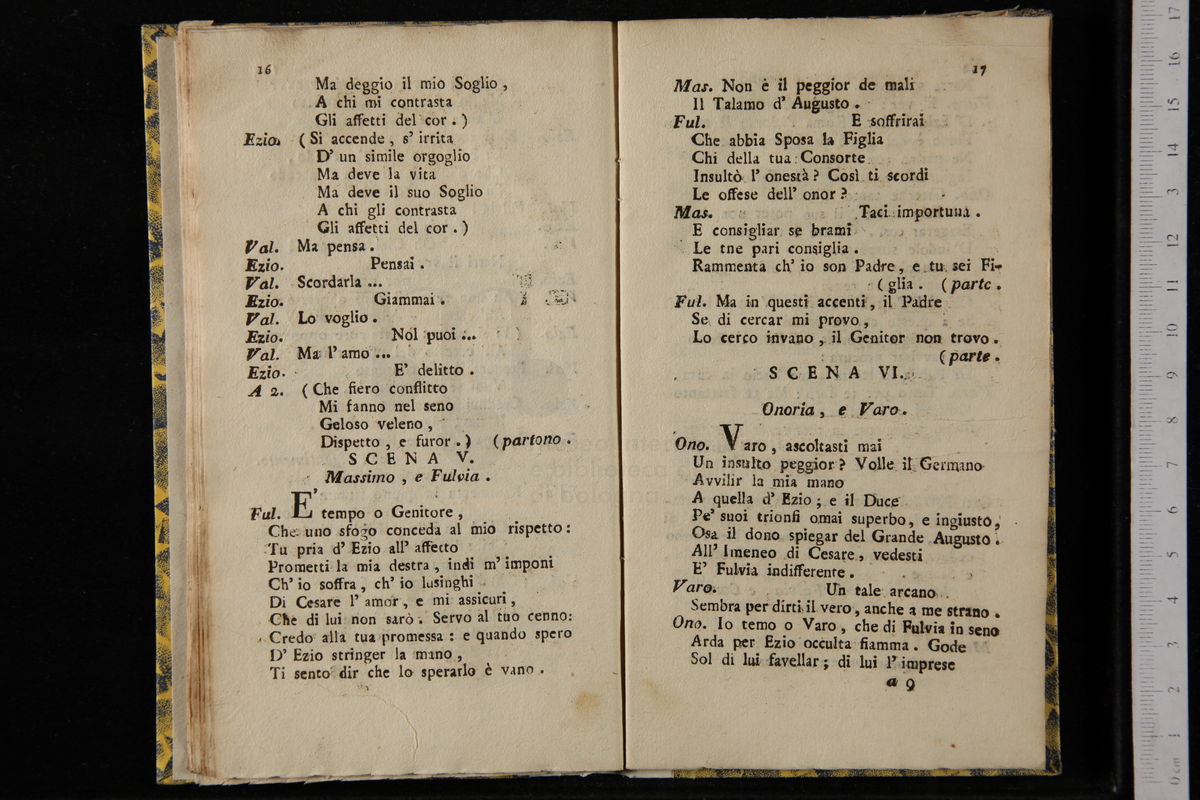 16
Ma deggio il mio Soglio ,
A chi mi contrasta
Gli affetti del cor . )
Ezio. ( Si accende , s' irrita
D' un simile orgoglio
Ma deve la vita
Ma deve il suo Soglio
A chi gli contrasta
Gli affetti del cor . )
Val. Ma pensa .
Ezio. Pensai .
Val. Scordarla ...
Ezio. Giammai .
Val. Lo voglio .
Ezio. Nol puoi ...
Val. Ma l' amo ...
Ezio. E' delitto .
A 2. ( Che fiero conflitto
Mi fanno nel seno
Geloso veleno ,
Dispetto , e furor . ) ( partono .
SCENA V.
Massimo , e Fulvia .
Ful. E' tempo o Genitore ,
Che uno sfogo conceda al mio rispetto :
Tu pria d' Ezio all' affetto
Prometti la mia destra , indi m' imponi
Ch' io soffra , ch' io lusinghi
Di Cesare l' amor , e mi assicuri ,
Che di lui non sarò . Servo al tuo cenno :
Credo alla tua promessa : e quando spero
D' Ezio stringer la mano ,
Ti sento dir che lo sperarlo è vano .
17
Mas. Non è il peggior de mali
Il Talamo d' Augusto .
Ful. E soffrirai
Che abbia Sposa la Figlia
Chi della tua Consorte
Insultò l' onestà ? Così ti scordi
Le offese dell' onor ?
Mas. Taci importuna .
E consigliar se brami
Le tne pari consiglia .
Rammenta ch' io son Padre , e tu sei Fi-
( glia . ( parte .
Ful. Ma in questi accenti , il Padre
Se di cercar mi provo ,
Lo cerco invano , il Genitor non trovo .
( parte .
SCENA VI.
Onoria , e Varo .
Ono. Varo , ascoltasti mai
Un insulto peggior ? Volle il Germano
Avvilir la mia mano
A quella d' Ezio ; e il Duce
Pe' suoi trionfi omai superbo , e ingiusto ,
Osa il dono spiegar del Grande Augusto .
All' Imeneo di Cesare , vedesti
E' Fulvia indifferente .
Varo. Un tale arcano
Sembra per dirti il vero , anche a me strano .
Ono. Io temo o Varo , che di Fulvia in seno
Arda per Ezio occulta fiamma . Gode
Sol di lui favellar ; di lui l' imprese
a 9